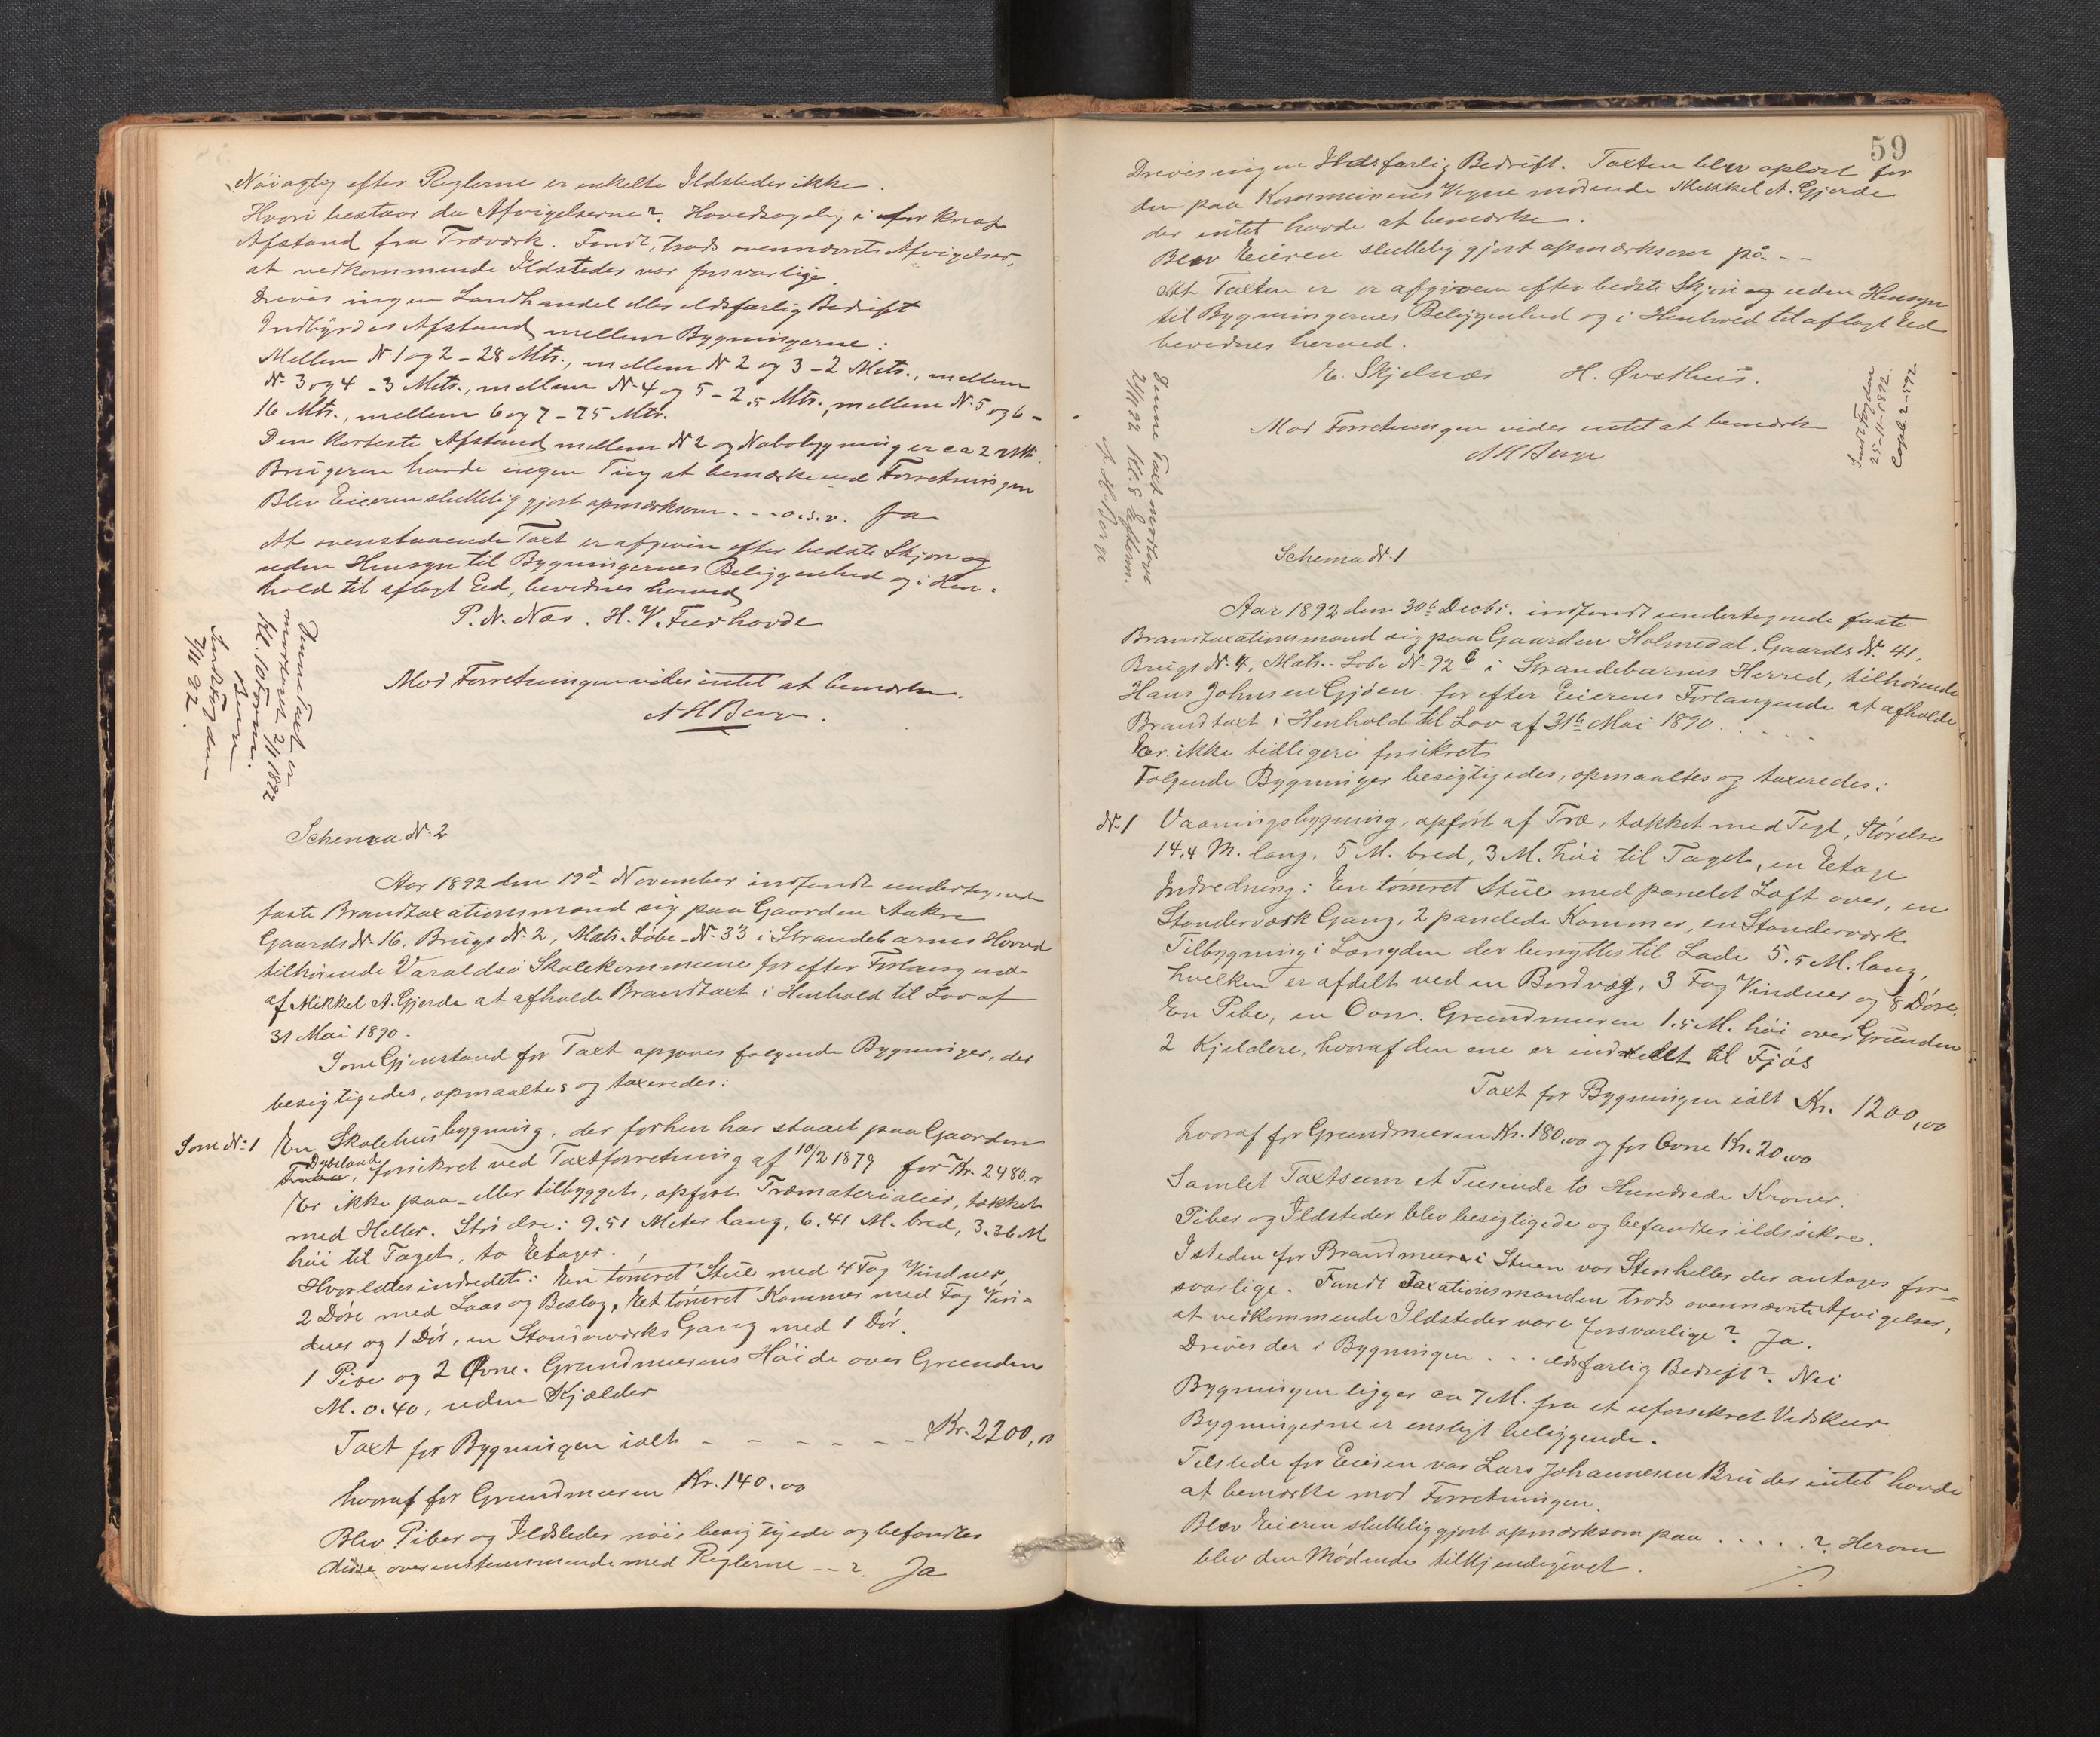 Nöiagtig efter Reglerne er enkelte Ildsteder ikke.
Hvori bestaar da Afvigelserne? Hovedsagelig i for knap
Afstand fra Træværk. Fandt, trods ovennævnte Afvigelser,
at vedkommende Ildsteder var forsvarlige
Drives ingen Landhandel eller ildsfarlig Bedrift
Indbyrdes Afstand mellem Bygningerne:
Mellem N 1 og 2 - 28 Mtr., mellem N 2 og 3 - 2 Mets., mellem
N. 3 og 4 - 3 Mets., mellem N. 4 og 5 - 2,5 Mtr. mellem N. 5 og 6 -
16 Mtr., mellem 6 og 7 - 75 Mtr.
Den korteste Afstand mellem N 2 og Nabobygning er ca 2 Mtr.
Brugeren havde ingen Ting at bemærke ved Forretningen
Blev Eieren sluttelig gjort opmærksom - - - o.s.v. Ja
At ovenstaaende Taxt er afgiven efter bedste Skjøn og
uden Hensyn til Bygningernes Beliggenhed og i Hen-
hold til aflagt Ed, bevidnes herved
P. N. Næs. H. V. Fuerhovde
Mod Forretningen vides intet at bemærke.
A H Berge.
Denne Taxt er
modtaget 2/11 1892
Kl. 10 Form.
Berge
Sendt Fogden
7/11 92.
Schema N. 2
Aar 1892 den 19d November indfandt undertegnede
faste Brandtaxationsmænd sig paa Gaarden Aakre
Gaards N. 16, Brugs N. 2, Matr. Löbe-N. 33 i Strandebarms Herred
tilhørende Varaldsø Skolekommune for efter Forlangende
af Mikkel A. Gjerde at afholde Brandtaxt i Henhold til Lov af
31 Mai 1890.
Som Gjenstand for Taxt opgaves følgende Bygninger, der
besigtigedes, opmaaltes og taxeredes:
Som N. 1 En Skolehusbygning, der forhen har staaet paa Gaarden
Dybsland
, forsikret ved Taxtforretning af 10/2 1879 for Kr. 2480.00
Er ikke paa- eller tilbygget, opført Træmaterialier, tækket
med Heller. Størelse: 9.51 Meter lang, 6.41 M. bred, 3.36 M
höi til Taget, to Etager.
Hvorledes indredet: En tømret Stue med 4 Fag Vinduer,
2 Döre med Laas og Beslag, Et tømret Kammer med Fag Vin-
duer og 1 Dör, en Stonderværks Gang med 1 Dör.
1 Pibe og 2 Ovne. Grundmurens Höide over Grunden
M. 0.40, uden Kjælder
Taxt for Bygningen ialt - - - - - - Kr. 2200,00
hvoraf for Grundmuren Kr. 140.00
Blev Piber og Ildsteder nöie besigtigede og befandtes
disse overensstemmende med Reglerne - - ? Ja
59
Drives ingen Ildsfarlig Bedrift. Taxten blev oplæst for
den paa Kommunens Vegne mødende Mikkel A. Gjerde
der intet havde at bemærke.
Blev Eieren sluttelig gjort opmærksom på - -
At Taxten er er afgiven efter bedste Skjøn og uden Hensyn
til Bygningernes Beliggenhed og i Henhold til aflagt Ed
bevidnes herved.
E. Skjelnæs H. Øvsthus.
Mod Forretningen vides intet at bemærke
A H Berge
Denne Taxt modtaget
21/11 92 Kl. 8 Efterm.
A. H. Berge
Sendt Fogden
25-11-1892.
Copb. 2-592
Schema N. 1
Aar 1892 den 30te Decbr. indfandt undertegnede faste
Brandtaxationsmænd sig paa Gaarden Holmedal, Gaards N. 41,
Brugs N. 4, Matr.-Löbe N. 92 b i Strandebarms Herred, tilhørende
Hans Johnsen Gjöen. for efter Eierens Forlangende at afholde
Brandtaxt i Henhold til Lov af 31te Mai 1890. . . . .
Er ikke tidligere forsikret.
Følgende Bygninger besigtigedes, opmaaltes og taxeredes:
N. 1 Vaaningsbygning, opført af Træ, tækket med Tegl, Størelse
14,4 M. lang, 5 M. bred, 3 M. höi til Taget, en Etage
Indredning: En tømret Stue med panelet Loft over, en
Stonderværk Gang, 2 panelede Kammer, en Stonderværk
Tilbygning i Længden der benyttes til Lade 5.5 M. lang,
hvilken er afdelt ved en Bordvæg, 3 Fag Vinduer og 8 Döre.
En Pibe, en Ovn. Grundmuren 1.5 M. höi over Grunden
2 Kjeldere, hvoraf den ene er indredet til Fjös
Taxt for Bygningen ialt Kr. 1200,00
hvoraf for Grundmuren Kr. 180,00 og for Ovne Kr. 20,00
Samlet Taxtsum et Tusinde to Hundrede Kroner.
Piber og Ildsteder blev besigtigede og befandtes ildssikre.
Isteden for Brandmure i Stuen var Stenheller der antages for-
svarlige. Fandt Taxationsmænden trods ovennævnte Afvigelser,
at vedkommende Ildsteder vare forsvarlige? Ja.
Drives der i Bygningen . . . ildsfarlig Bedrift? Nei
Bygningen ligger ca 7 M. fra et uforsikret Vedskur
Bygningerne er ensligt beliggende.
Tilstede for Eieren var Lars Johannesen Bru der intet havde
at bemærke mod Forretningen.
Blev Eieren sluttelig gjort opmærksom paa . . . . . ? Herom
blev den Mødende tilkjendegivet.